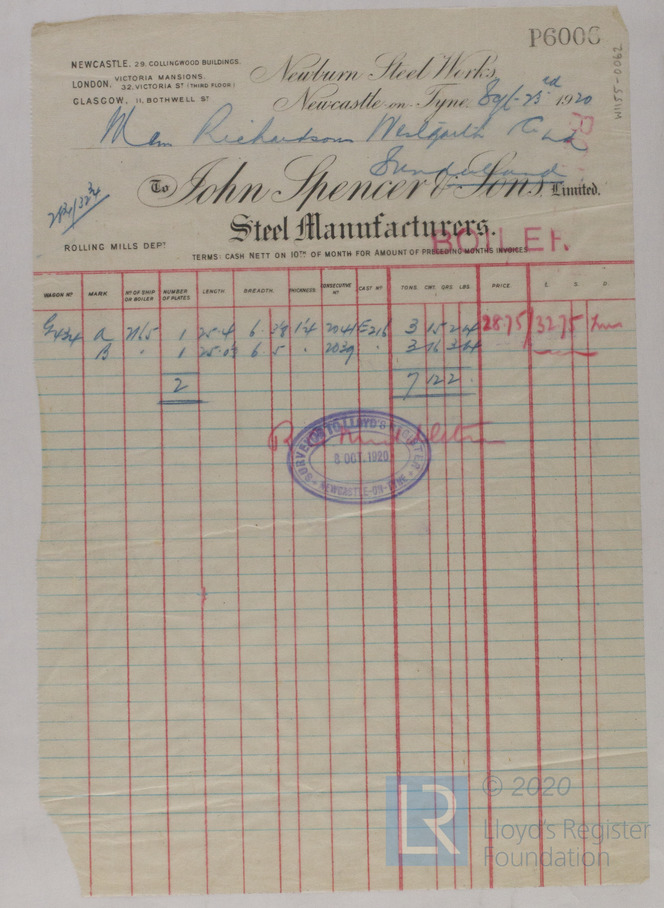 P6006
W1155-0062
NEWCASTLE. 29. COLLINGWOOD BUILDINGS.
LONDON. VICTORIA MANSIONS. 32, VICTORIA ST (THIRD FLOOR)
GLASGOW. 11, BOTHWELL ST
Newburn Steel Works,
Newcastle-on-Tyne. Sept 23rd 1920
Richardsons Westgarth & Co Ltd
Sunderland
To John Spencer & Sons, Limited.
Steel Manufacturers.
BOILER
ROLLING MILLS DEPT
TERMS: CASH NETT ON 10TH OF MONTH FOR AMOUNT OF PRECEDING MONTHS INVOICES.
WAGON No MARK No OF SHIP OR BOILER NUMBER OF PLATES LENGTH BREADTH. THICKNESS CONSECUTIVE No CAST No TONS. CWT. QRS. LBS. PRICE £. S. D.
A 1 25.4 6 1 3 15 2 28.75 32.75
B " 1 6 5 " 2039 " 3 16 3
2 7 12 2
SURVEYOR TO LLOYD'S REGISTER
8 OCT. 1920
NEWCASTLE-ON-TYNE
LR
© 2020
Lloyd's Register
Foundation